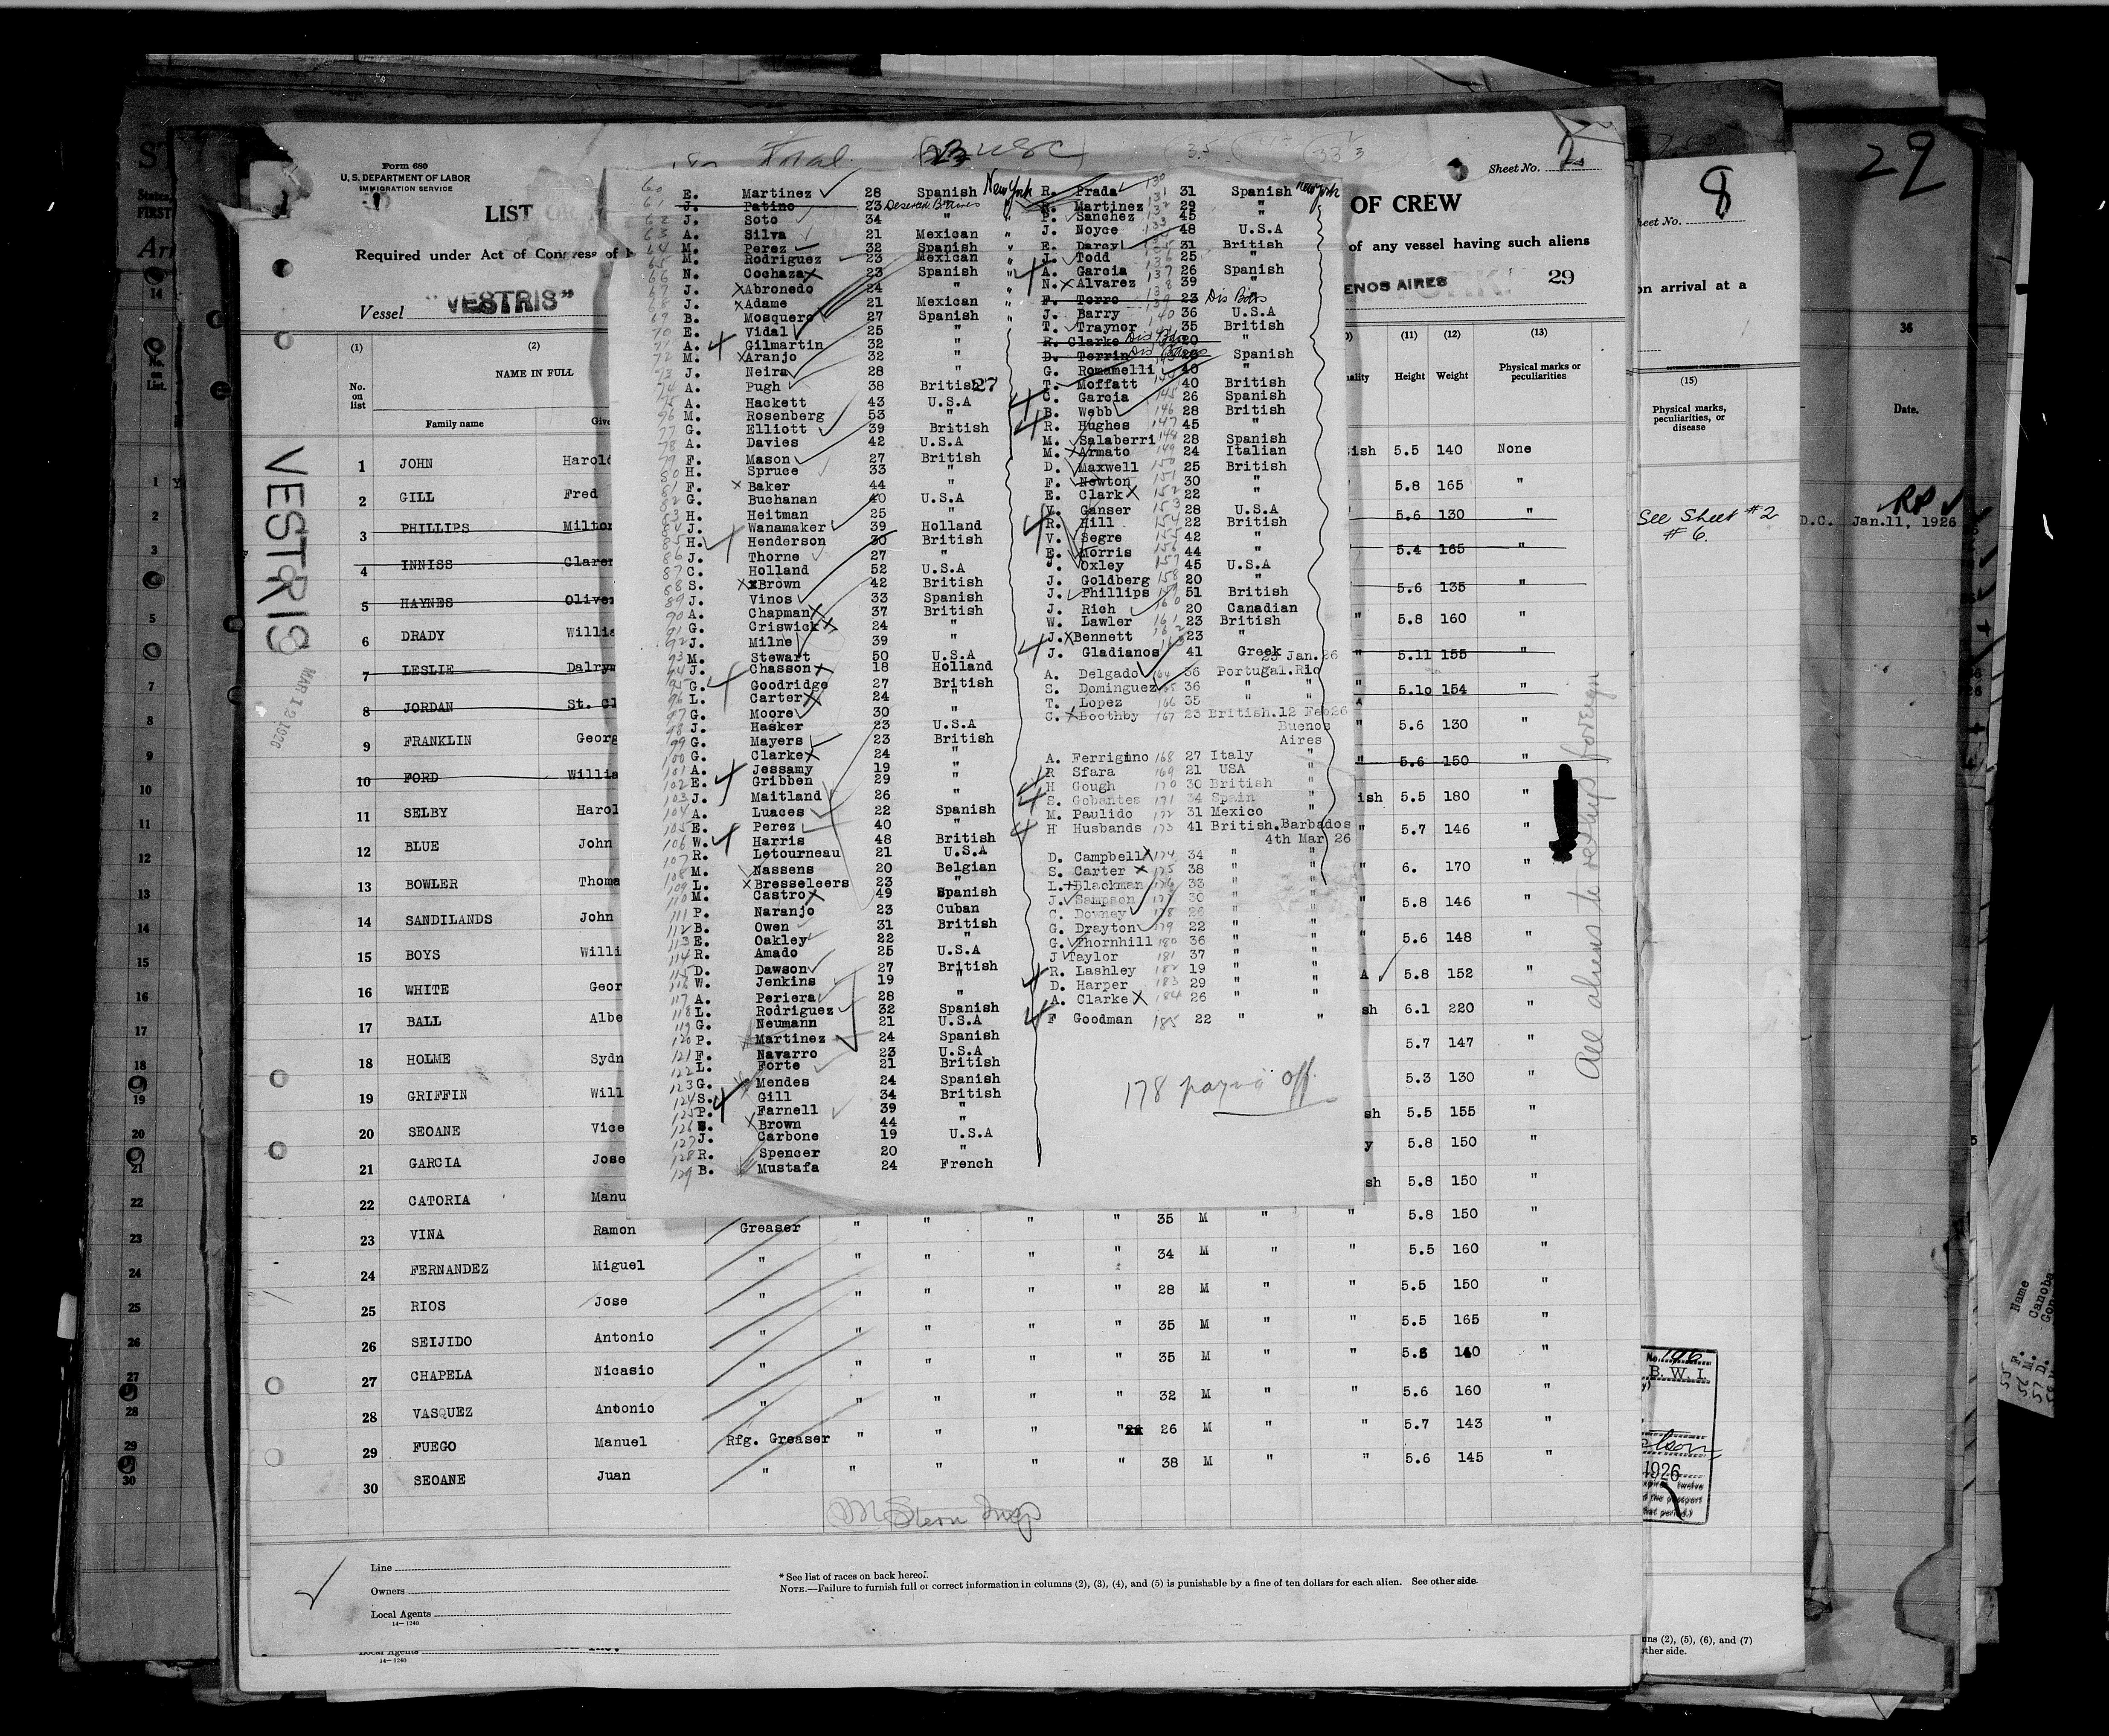 Form 680
U. S. DEPARTMENT OF LABOR
IMMIGRATION SERVICE
LIST OF CREW
Sheet No. 2
Required under Act of Congress of any vessel having such aliens
Vessel "VESTRIS"
ENOS AIRES 29
VESTRIS
MAR 12 1926
(1) (2) (11) (12) (13)
No. on list
NAME IN FULL
Family name
Height Weight Physical marks or peculiarities
1 JOHN Harold 5.5 140 None
2 GILL Fred 5.8 165 "
3 PHILLIPS Milton 5.6 130 "
4 INNISS Claren 5.4 165 "
5 HAYNES Oliver 5.6 135 "
6 DRADY Willia 5.8 160 "
7 LESLIE Dalrym 5.11 155 "
8 JORDAN St. Cl 5.10 154 "
9 FRANKLIN Georg 5.6 130 "
10 FORD Willia 5.6 150 "
11 SELBY Harol 5.5 180 "
12 BLUE John 5.7 146 "
13 BOWLER Thoma 6. 170 "
14 SANDILANDS John 5.8 146 "
15 BOYS Willi 5.6 148 "
16 WHITE Geor 5.8 152 "
17 BALL Albe 6.1 220 "
18 HOLME Sydn 5.7 147 "
19 GRIFFIN Will 5.3 130 "
20 SEOANE Vice 5.5 155 "
21 GARCIA Jose 5.8 150 "
22 CATORIA Manu 5.8 150 "
23 VINA Ramon Greaser " " " " 35 M " " 5.8 150 "
24 FERNANDEZ Miguel " " " " " 34 M " " 5.5 160 "
25 RIOS Jose " " " " " 28 M " " 5.5 150 "
26 SEIJIDO Antonio " " " " " 35 M " " 5.5 165 "
27 CHAPELA Nicasio " " " " " 35 M " " 5.6 140 "
28 VASQUEZ Antonio " " " " " 32 M " " 5.6 160 "
29 FUEGO Manuel Rfg. Greaser " " " " 26 M " " 5.7 143 "
30 SEOANE Juan " " " " " 38 M " " 5.6 145 "
Total
60 E. Martinez 28 Spanish New York
61 J. Patino 23 Deserted B Aires
62 J. Soto 34 "
63 A. Silva 21 Mexican "
64 M. Perez 32 Spanish "
65 M. Rodriguez 23 Mexican "
66 N. Cochaza 23 Spanish "
67 J. Abronedo 24 "
68 J. Adame 21 Mexican "
69 B. Mosquero 27 Spanish "
70 E. Vidal 25 "
71 A. Gilmartin 32 "
72 M. Aranjo 32 "
73 J. Neira 28 "
74 A. Pugh 38 British 27
75 A. Hackett 43 U.S.A
76 M. Rosenberg 53 "
77 G. Elliott 39 British
78 A. Davies 42 U.S.A
79 F. Mason 27 British
80 H. Spruce 33 "
81 F. Baker 44 "
82 G. Buchanan 40 U.S.A
83 H. Heitman 25 "
84 J. Wanamaker 39 Holland
85 H. Henderson 30 British
86 J. Thorne 27 "
87 C. Holland 52 U.S.A
88 S. Brown 42 British
89 J. Vinos 33 Spanish
90 A. Chapman 37 British
91 G. Criswick 24 "
92 J. Milne 39 "
93 M. Stewart 50 U.S.A
94 J. Chasson 18 Holland
95 G. Goodridge 27 British
96 L. Carter 24 "
97 G. Moore 30 "
98 J. Hasker 23 U.S.A
99 G. Mayers 23 British
100 G. Clarke 24 "
101 A. Jessamy 19 "
102 E. Gribben 29 "
103 J. Maitland 26 "
104 A. Luaces 22 Spanish
105 E. Perez 40 "
106 W. Harris 48 British
107 R. Letourneau 21 U.S.A
108 M. Nassens 20 Belgian
109 L. Bresseleers 23 "
110 M. Castro 49 Spanish
111 P. Naranjo 23 Cuban
112 B. Owen 31 British
113 E. Oakley 22 "
114 R. Amado 25 U.S.A
115 D. Dawson 27 British
116 W. Jenkins 19 "
117 A. Periera 28 "
118 L. Rodriguez 32 Spanish
119 G. Neumann 21 U.S.A
120 P. Martinez 24 Spanish
121 F. Navarro 23 U.S.A
122 L. Forte 21 British
123 G. Mendes 24 Spanish
124 S. Gill 34 British
125 P. Farnell 39 "
126 S. Brown 44 "
127 J. Carbone 19 U.S.A
128 R. Spencer 20 "
129 B. Mustafa 24 French
R. Prada 31 Spanish New York
Martinez 29 "
F. Sanchez 45 "
J. Noyce 48 U.S.A
E. Darcy 31 British
J. Todd 136 25 "
A. Garcia 137 26 Spanish
N. Alvarez 138 39 "
F. Torro 23 Dis BAs
J. Barry 140 36 U.S.A
T. Traynor 35 British
R. Clarke 20 "
D. Terrin 23 Spanish
G. Romamelli 40 "
T. Moffatt 40 British
C. Garcia 145 26 Spanish
B. Webb 146 28 British
R. Hughes 147 45 "
M. Salaberri 148 28 Spanish
M. Armato 149 24 Italian
D. Maxwell 150 25 British
F. Newton 151 30 "
E. Clark 152 22 "
V. Ganser 153 28 U.S.A
R. Hill 154 22 British
V. Segre 155 42 "
E. Morris 156 44 "
J. Oxley 157 45 U.S.A
J. Goldberg 158 20 "
J. Phillips 159 51 British
J. Rich 160 20 Canadian
W. Lawler 161 23 British
J. Bennett 162 23 "
J. Gladianos 163 41 Greek
25 Jan. 26
A. Delgado 164 36 Portugal.Rio
S. Dominguez 165 36 " "
T. Lopez 166 35 " "
C. Boothby 167 23 British.12 Feb 26
Buenos
Aires
A. Ferrigino 168 27 Italy "
R Sfara 169 21 USA "
H Gough 170 30 British "
S. Gobantes 171 34 Spain "
M. Paulido 172 31 Mexico "
H Husbands 173 41 British.Barbados
4th Mar 26
D. Campbell 174 34 " "
S. Carter 175 38 " "
L. Blackman 176 33 " "
J. Sampson 177 30 " "
C. Downey 178 26 " "
G. Drayton 179 22 " "
G. Thornhill 180 36 " "
J Taylor 181 37 " "
R. Lashley 182 19 " "
D. Harper 183 29 " "
A. Clarke 184 26 " "
F Goodman 185 22 " "
178 paying off
All aliens to reship foreign
M Stern Insp
Line
Owners
Local Agents
14—1240
* See list of races on back hereof.
NOTE.—Failure to furnish full or correct information in columns (2), (3), (4), and (5) is punishable by a fine of ten dollars for each alien. See other side.
Local Agents
14—1240
heet No. 8
on arrival at a
(15)
Physical marks, peculiarities, or disease
See Sheet #2
#6.
B. W. I.
1926
ns (2), (5), (6), and (7)
ther side.
29
36
Date.
D.C. Jan.11, 1926
Name
Canoba
55 F.
56 M.
57 D.